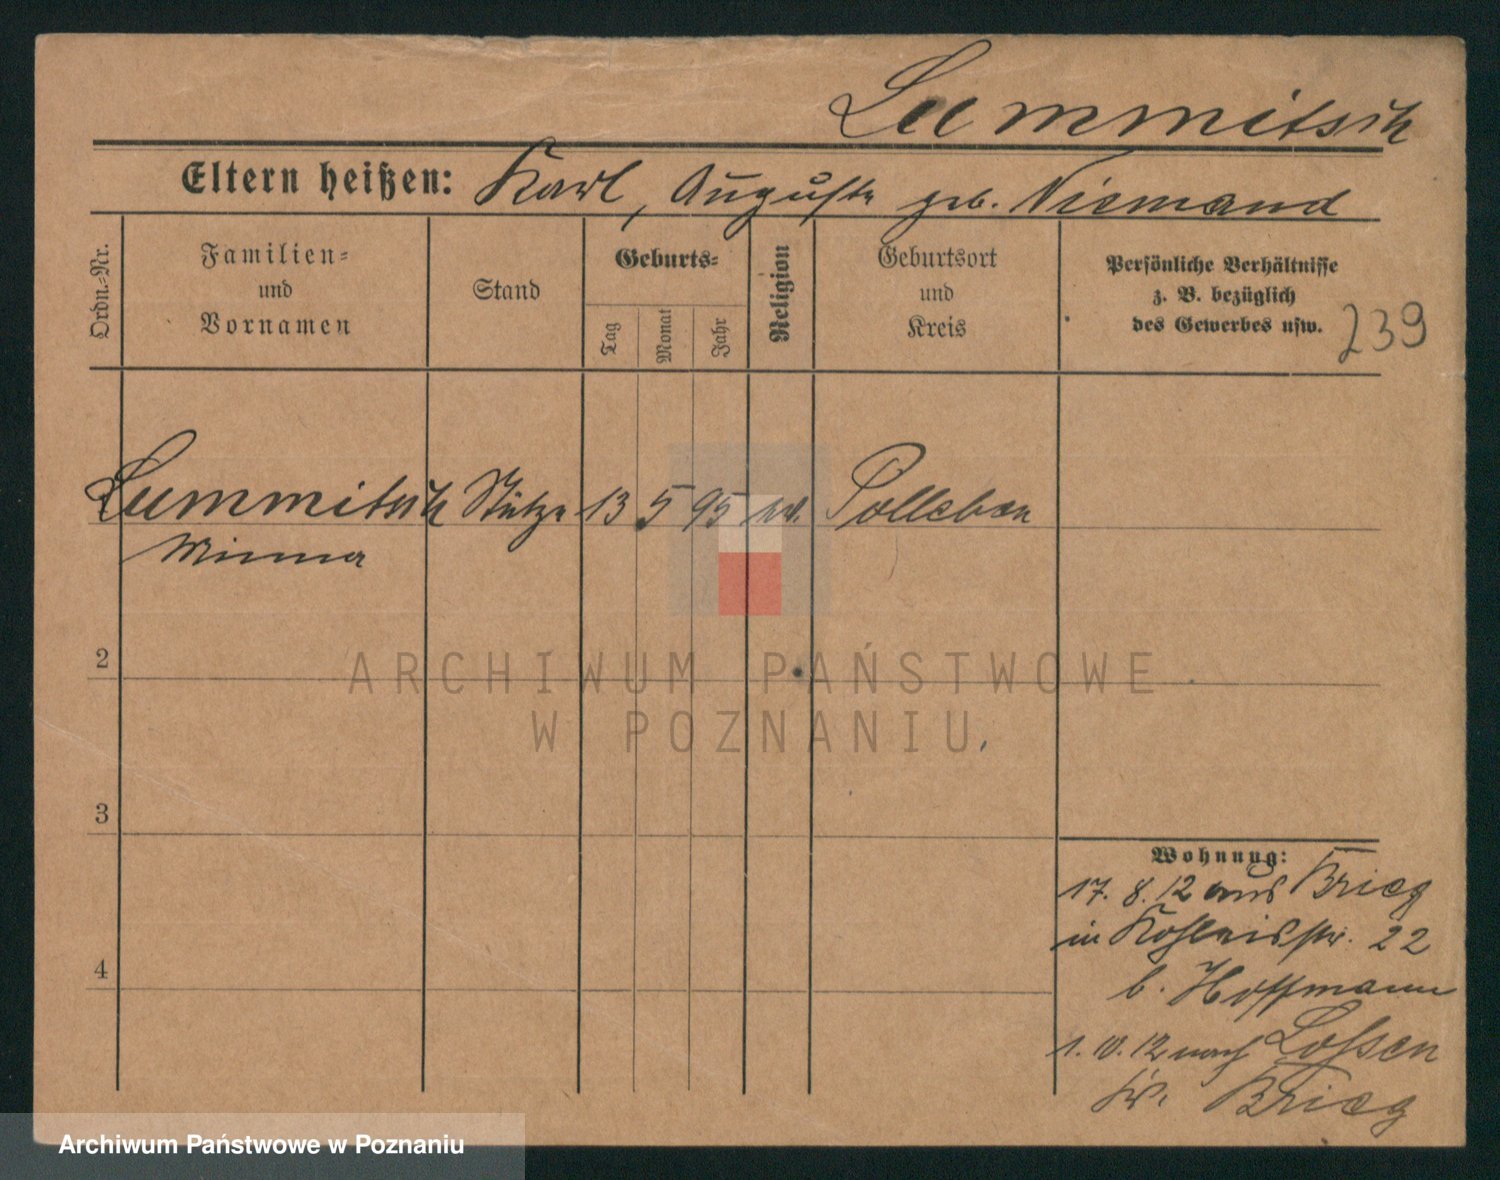 Lummitsch
Eltern heißen: Karl, Auguste geb. Niemand
Ordn.-Nr.
Familien-
und
Vornamen
Stand
Geburts-
Tag
Monat
Jahr
Religion
Geburtsort
und
Kreis
Persönliche Verhältnisse
z. B. bezüglich
des Gewerbes usw.
239
Lummitsch Stütze 13 5 95 ev. Polleben
Minna
2
3
4
Wohnung:
17. 8. 12 aus Brieg
in Kohleisstr. 22
b. Hoffmann
1. 10. 12 nach Lossen
Kr. Brieg
ARCHIWUM PAŃSTWOWE
W POZNANIU
Archiwum Państwowe w Poznaniu